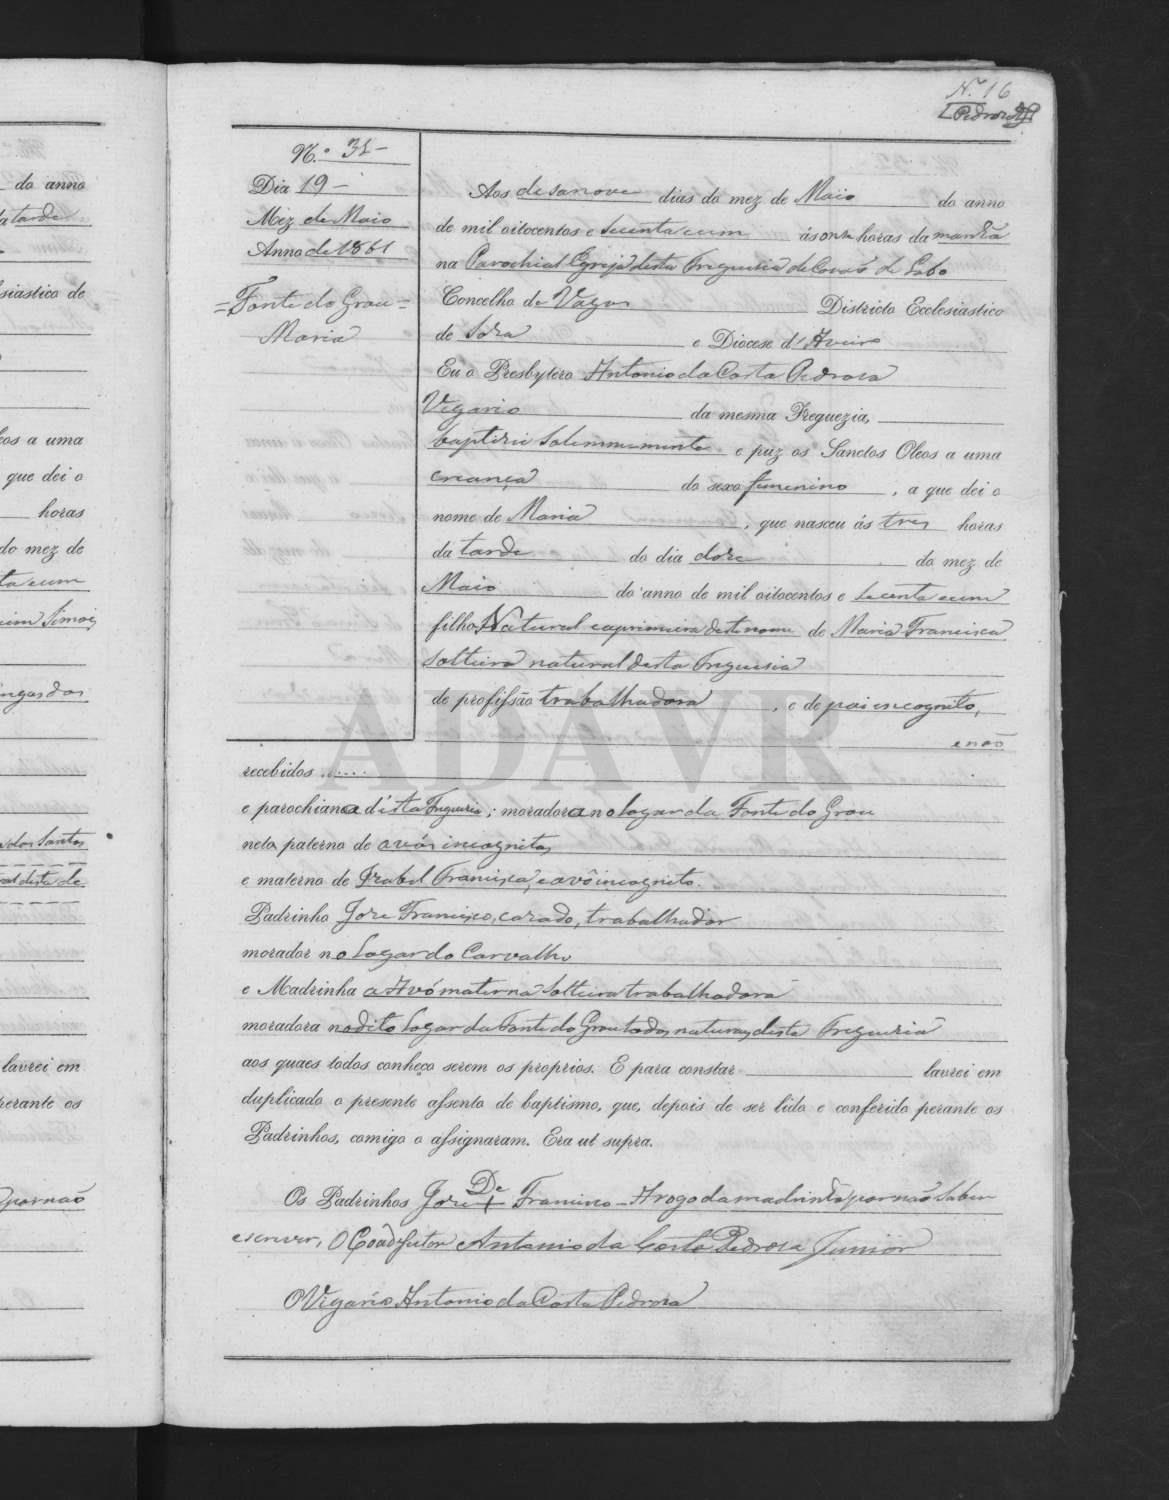 N.º 16
Pedrosa
N.º 31 -
Dia 19 -
Mez de Maio
Anno de 1861
= Fonte do Grou =
Maria
Aos desanove dias do mez de Maio do anno
de mil oitocentos e secenta e um ás onze horas da manhã
na Parochial Egreja desta Freguezia de Covão do Lobo
Concelho de Vagos Districto Ecclesiastico
de Soza e Diocese d'Aveiro
Eu o Presbytero Antonio da Costa Pedrosa
Vigario da mesma Freguezia,
baptizei Solemnemente e puz os Sanctos Oleos a uma
creança do sexo femenino, a que dei o
nome de Maria, que nasceu ás tres horas
da tarde do dia doze do mez de
Maio do anno de mil oitocentos e secenta e um
filha Natural e a primeira deste nome de Maria Francisca
solteira natural desta Freguesia
de profissão trabalhadora, e de pai incognito,
e não
recebidos ......
e parochiana d'esta Freguezia; moradora no logar da Fonte do Grou
neta paterna de avós incognitos
e materna de Izabel Francisca, e avô incognito.
Padrinho Joze Francisco, cazado, trabalhador
morador no Logar do Carvalho
e Madrinha a Avó materna Solteira trabalhadora
moradora no dito Logar da Fonte do Grou todos naturaes desta Freguezia
aos quaes todos conheço serem os proprios. E para constar lavrei em
duplicado o presente assento de baptismo, que, depois de ser lido e conferido perante os
Padrinhos, comigo o assignaram. Era ut supra.
Os Padrinhos Joze De + Francisco - A rogo da madrinha por não saber
escrever, O Coadjutor Antonio da Costa Pedrosa Junior
O Vigario Antonio da Costa Pedrosa
ADAVR
do anno
da tarde
siastico de
eos a uma
que dei o
horas
do mez de
ta e um
uim Simoes
dos Santos
lavrei em
perante os
por não